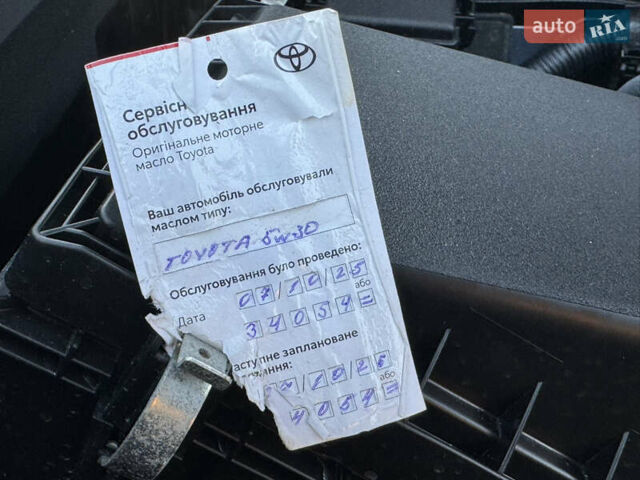 auto RIA
.com
Сервісн
обслуговування
Оригінальне моторне
масло Toyota
Ваш автомобіль обслуговували
маслом типу:
TOYOTA 5W30
Обслуговування було проведено:
07/10/25
Дата
або
34054=
аступне заплановане
/10/26
або
4054=